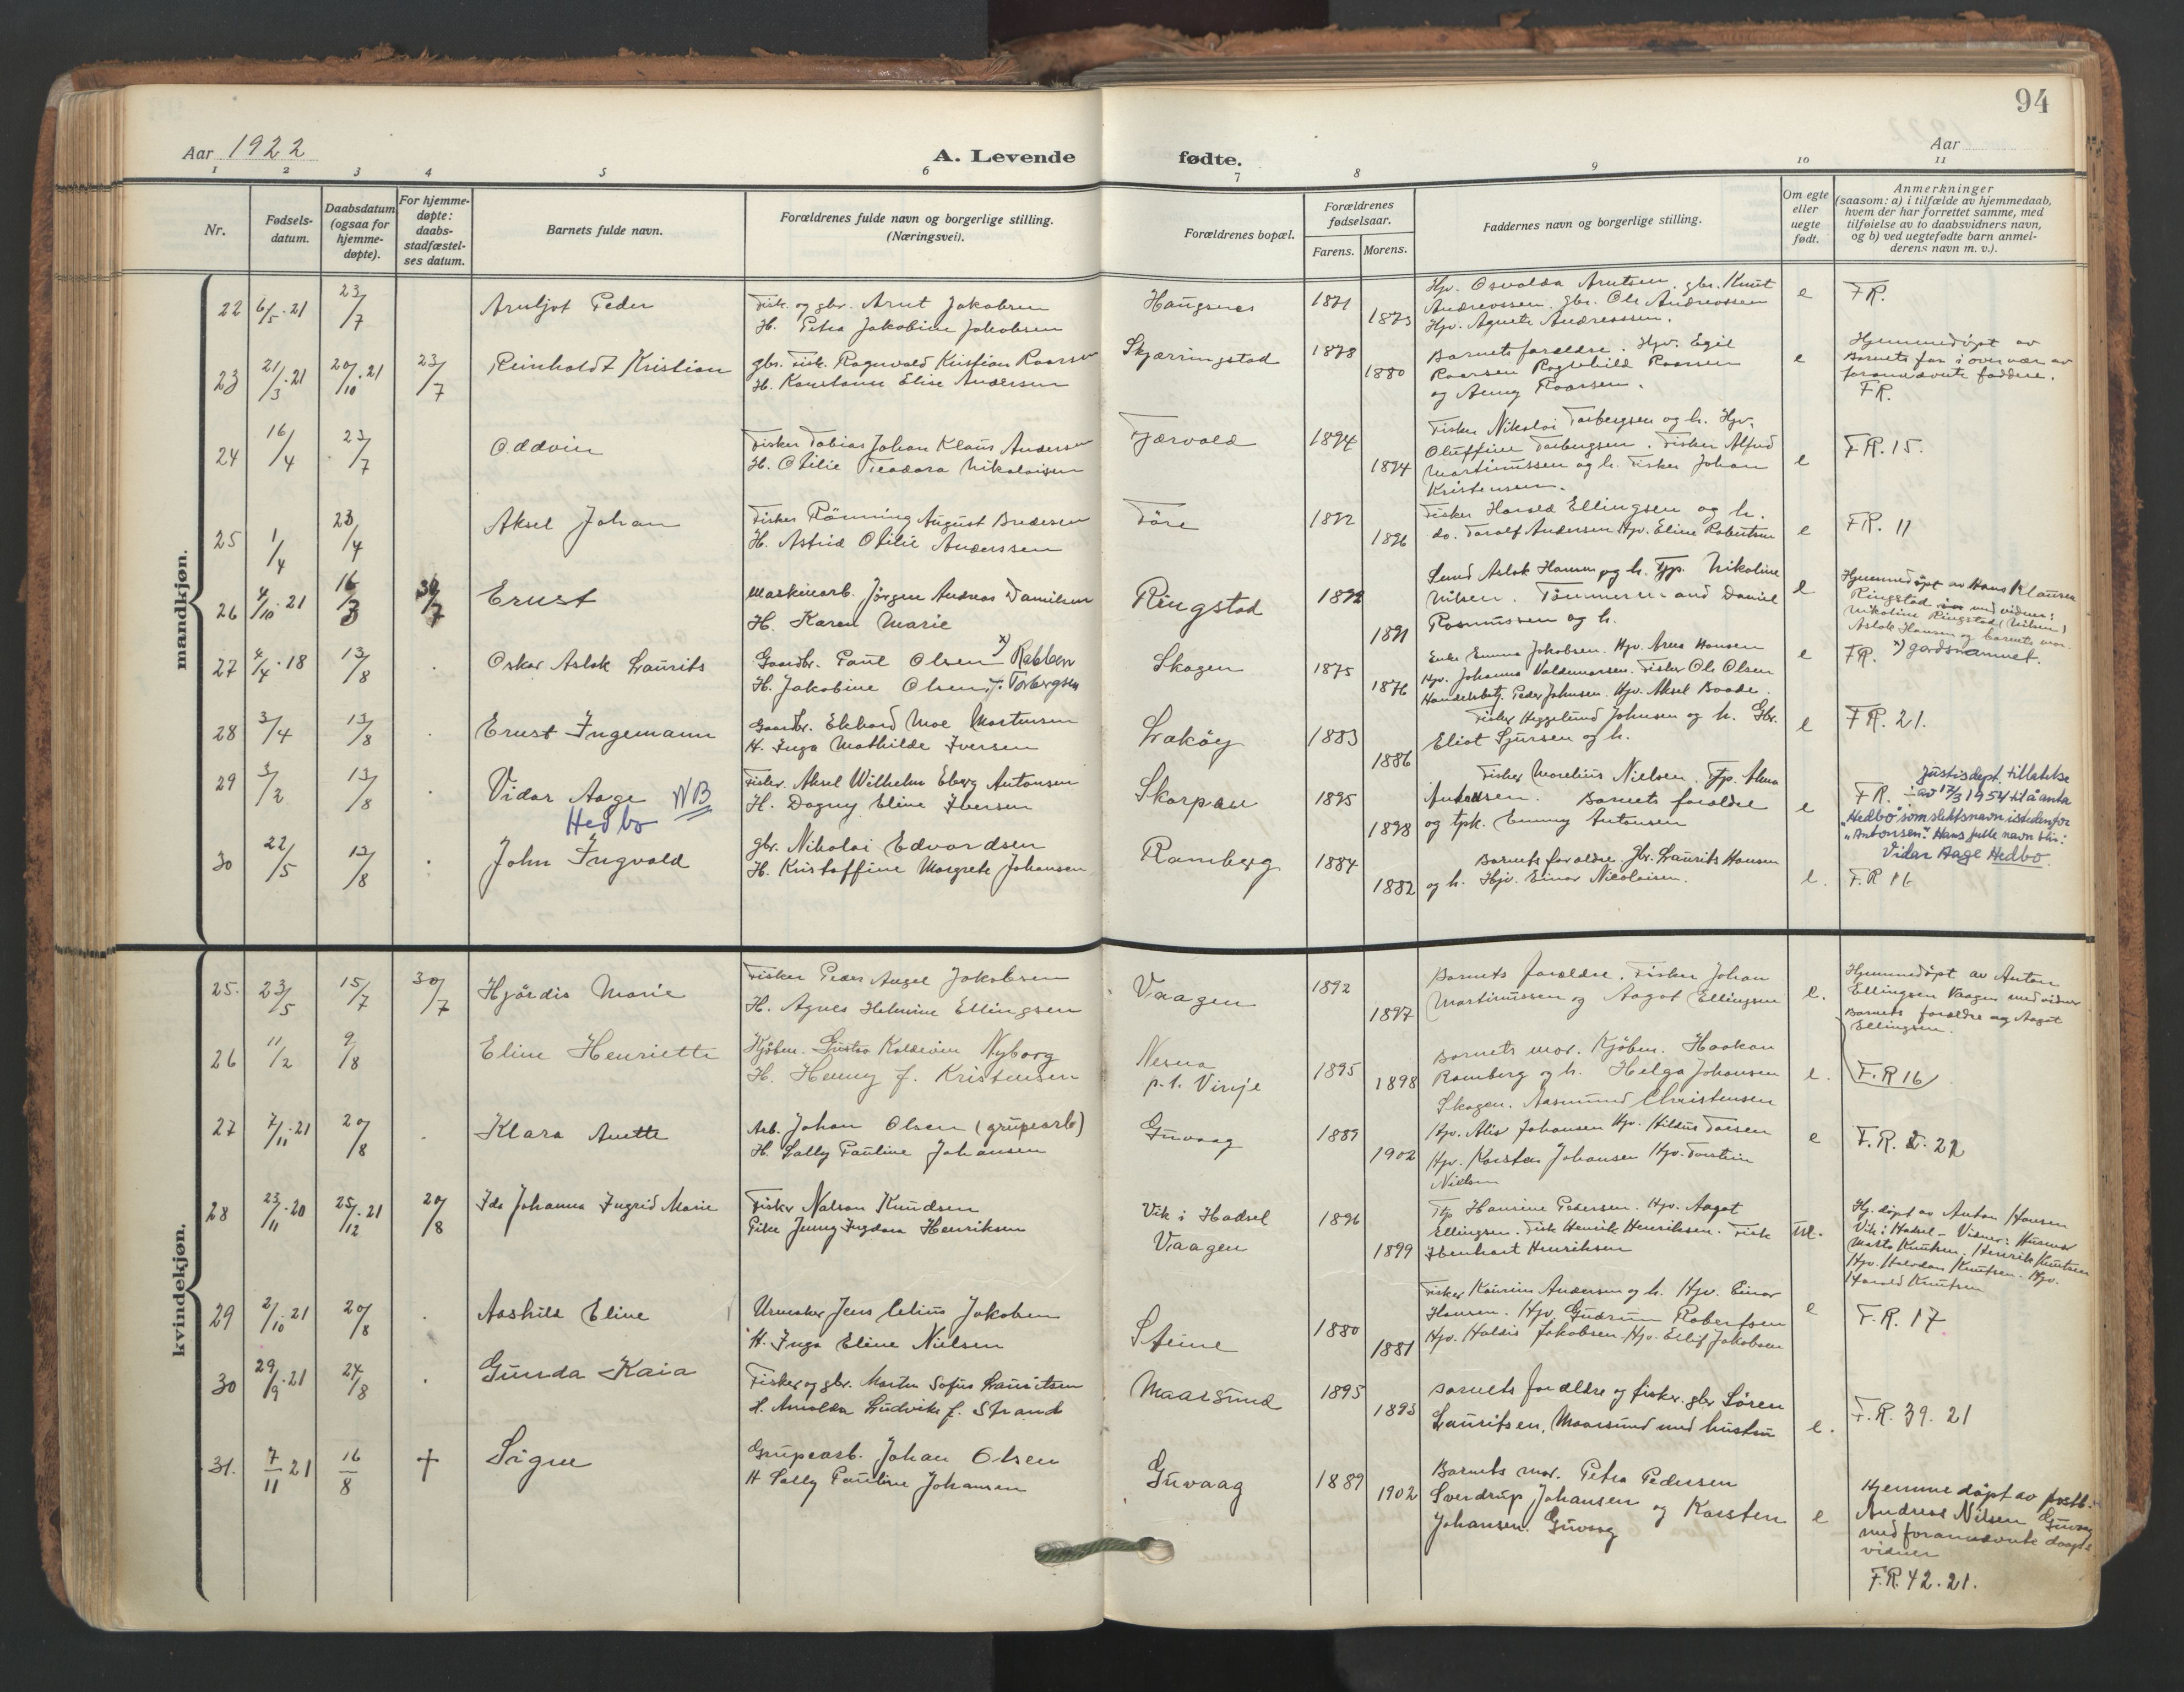 94
Aar 1922
A. Levende
fødte.
Aar
1 2 3 4 5 6 7 8 9 10 11
Nr.
Fødsels-
datum.
Daabsdatum
(ogsaa for
hjemme-
døpte).
For hjemme-
døpte:
daabs-
stadfæstel-
ses datum.
Barnets fulde navn.
Forældrenes fulde navn og borgerlige stilling.
(Næringsvei).
Forældrenes bopæl.
Forældrenes
fødselsaar.
Farens. Morens.
Faddernes navn og borgerlige stilling.
Om egte
eller
uegte
født.
Anmerkninger
(saasom: a) i tilfælde av hjemmedaab,
hvem der har forrettet samme, med
tilføielse av to daabsvidners navn,
og b) ved uegtefødte barn anmel-
derens navn m. v.).
mandkjøn.
22 6/5.21 23/7 Arnljot Peder
Fisk. og gbr. Arnt Jakobsen
H. Petra Jakobine Jakobsen
Haugsnes 1871 1873
Hjv. Osvalda Arntsen, gbr. Knut
Andreassen, gbr. Ole Andreassen
Hjv. Agnete Andreassen.
e FR.
23 21/3.21 20/10.21 23/7 Reinholdt Kristian
gbr. Fisk. Ragnvald Kristian Roarsen
H. Konstanse Elise Andersen
Skjærringstad 1878 1880
Barnets forældre. Hjv. Egil
Roarsen Ragnhild Roarsen
og Aenny Roarsen.
e Hjemmedøpt av
Barnets far i overvær av
forannævnte faddere.
FR.
24 16/4 23/7 Oddvin
Fisker Tobias Johan Klaus Andersen
H. Otilie Teodora Nikolaisen
Fjærvold 1894 1894
Fisker Nikolai Torbergsen og h. Hjv.
Oluffine Torbergsen. Fisker Alfred
Martinussen og h. Fisker Johan
Kristensen.
e FR. 15.
25 1/4 23/4 Aksel Johan
Fisker Rønning August Bredesen
H. Astrid Otilie Anderssen
Føre 1892 1896
Fisker Harald Ellingsen og h.
do. Toralf Andersen Hjv. Eline Robertsen
e FR. 11
26 4/10.21 16/3 30/7 Ernst
Maskinarb. Jørgen Andreas Danielsen
H. Karen Marie
Ringstad 1892 1891
Smed Aslak Hansen og h. Tjp. Nikoline
Nilsen. Tømmermand Daniel
Rasmussen og h.
e Hjemmedøpt av Hans Klausen
Ringstad med vidner:
Nikoline Ringstad (Nilsen)
Aslak Hansen og barnets mor.
27 4/4.18 13/8 Oskar Aslak Laurits
Gaardbr. Paul Olsen x) Rabben
H. Jakobine Olsen f. Torbergsen
Skagen 1875 1876
Enke Emma Jakobsen. Hjv. Arne Hansen
Hjv. Johanna Valdemarsen. Fisker Ole Olsen
Handelsbetj. Peder Johnsen. Hjv. Aksel Boade.
e FR. x) gardsnamnet.
28 3/4 13/8 Ernst Ingemann
Gaardbr. Ekhard Moe Mortensen
H. Inga Mathilde Iversen
Laköy 1883 1886
Fisker Heggelund Johnsen og h. Gbr.
Eliot Sjursen og h.
e FR. 21.
29 3/2 13/8 Vidar Aage NB
Hedbo
Fisker. Aksel Wilhelm Eberg Antonsen
H. Dagny Eline Iversen
Skarpen 1895 1898
Fisker Marelius Nielsen. Tjp. Alma
Antonsen. Barnets forældre
og tpk. Emmy Antonsen
e FR. Justisdept. tillatelse
av 17/3 1954 til å anta
"Hedbo" som slektsnavn istedenfor
"Antonsen". Hans fulle navn blir:
Vidar Aage Hedbo.
30 22/5 13/8 John Ingvald
gbr. Nikolai Edvardsen
H. Kristoffine Margrete Johansen
Ramberg 1884 1882
Barnets forældre. Gbr. Laurits Hansen
og h. Hjv. Einar Nicolaisen.
e. F.R 16
kvindekjøn.
25. 23/5 15/7 30/7 Hjördis Marie
Fisker Peder Angel Jakobsen
H. Agnes Helmine Ellingsen
Vaagen 1892 1897
Barnets forældre. Fisker Johan
Martinussen og Aagot Ellingsen
e. Hjemmedøpt av Anton
Ellingsen Vaagen med vidner
Barnets forældre og Aagot
Ellingsen.
26 11/2 9/8 Eline Henriette
Kjöbm. Gustav Koldevin Nyborg
H. Henny f. Kristensen
Nesna
p.t. Vinje 1895 1898
Barnets mor. Kjøbm. Haakon
Ramberg og h. Helga Johansen
Skagen. Aasmund Christensen
e. F.R 16
27 7/11.21 20/8 Klara Anette
Arb. Johan Olsen (grupearb)
H. Sally Pauline Johansen
Guvaag 1889 1902
Hjv. Alis Johansen Hjv. Hildus Torsen
Hjv. Karsten Johansen Hjv. Torstein
Nielsen
e F.R. 2.22
28 23/11.20 25/12.21 20/8 Ida Johanna Ingrid Marie
Fisker Nelson Knudsen
Pike Jenny Ingdora Henriksen
Vik i Hadsel
Vaagen 1896 1899
Tp Hansine Pedersen. Hjv. Aagot
Ellingsen. Fisk Henrik Henriksen. Fisk
Ebenhart Henriksen
ue. Hj. døpt av Anton Hansen
Vik i Hadsel - Vidner: Husmor
Marta Knutsen. Henrik Knutsen
Hjv. Halvdan Knutsen. Hjv.
Harald Knutsen
29 2/10.21 20/8 Aashild Eline
Urmaker Jens Celius Jakobsen
H. Inga Eline Nielsen
Steine 1880 1881
Fisker Kaurin Andersen og h. Hjv. Einar
Hansen. Hjv. Gudrun Robertsen
Hjv. Haldis Jakobsen. Hjv. Ellif Jakobsen
e F.R. 17
30 29/9.21 24/8 Gunda Kaia
Fisker og gbr. Morten Sofus Lauritsen
H. Arnolda Ludvike f. Strand
Maarsund 1895 1893
Barnets forældre og fisker. gbr Sören
Lauritsen, Maarsund med hustru
e. F.R. 39. 21
31. 7/11 21 16/8 † Signe
Grupearb. Johan Olsen
H Sally Pauline Johansen
Guvaag 1889 1902
Barnets mor. Petra Pedersen
Sverdrup Johansen og Karsten
Johansen. Guvaag
e Hjemmedøpt av postb.
Andreas Nilsen Guvaag
med forannævnte daaps
vidner
F.R. 42. 21.